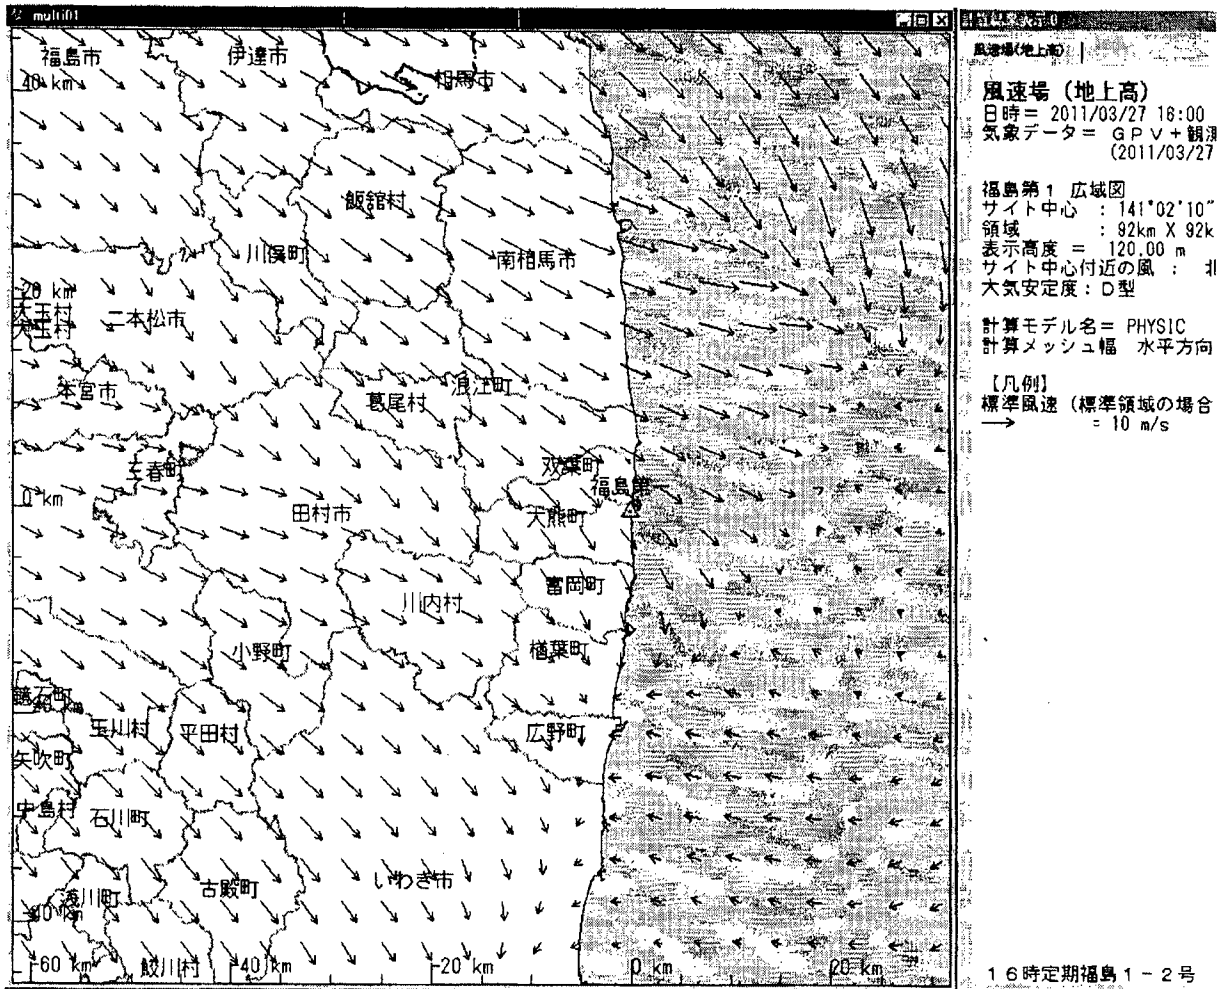 multi01
福島市
伊達市
相馬市
40 km
飯舘村
川俣町
南相馬市
20 km
大玉村
大玉村
二本松市
本宮市
葛尾村
浪江町
三春町
双葉町
福島第一
0 km
田村市
大熊町
富岡町
川内村
小野町
楢葉町
鏡石町
玉川村
平田村
広野町
矢吹町
中島村
石川町
いわき市
古殿町
浅川町
鮫川村
-60 km
-40 km
-20 km
0 km
20 km
計算結果表示
風速場(地上高)
風速場 (地上高)
日時= 2011/03/27 16:00
気象データ= GPV+観測
(2011/03/27
福島第1 広域図
サイト中心 : 141°02'10"
領域 : 92km X 92k
表示高度 = 120.00 m
サイト中心付近の風 : 北
大気安定度 : D型
計算モデル名= PHYSIC
計算メッシュ幅 水平方向
【凡例】
標準風速 (標準領域の場合
= 10 m/s
16時定期福島1-2号